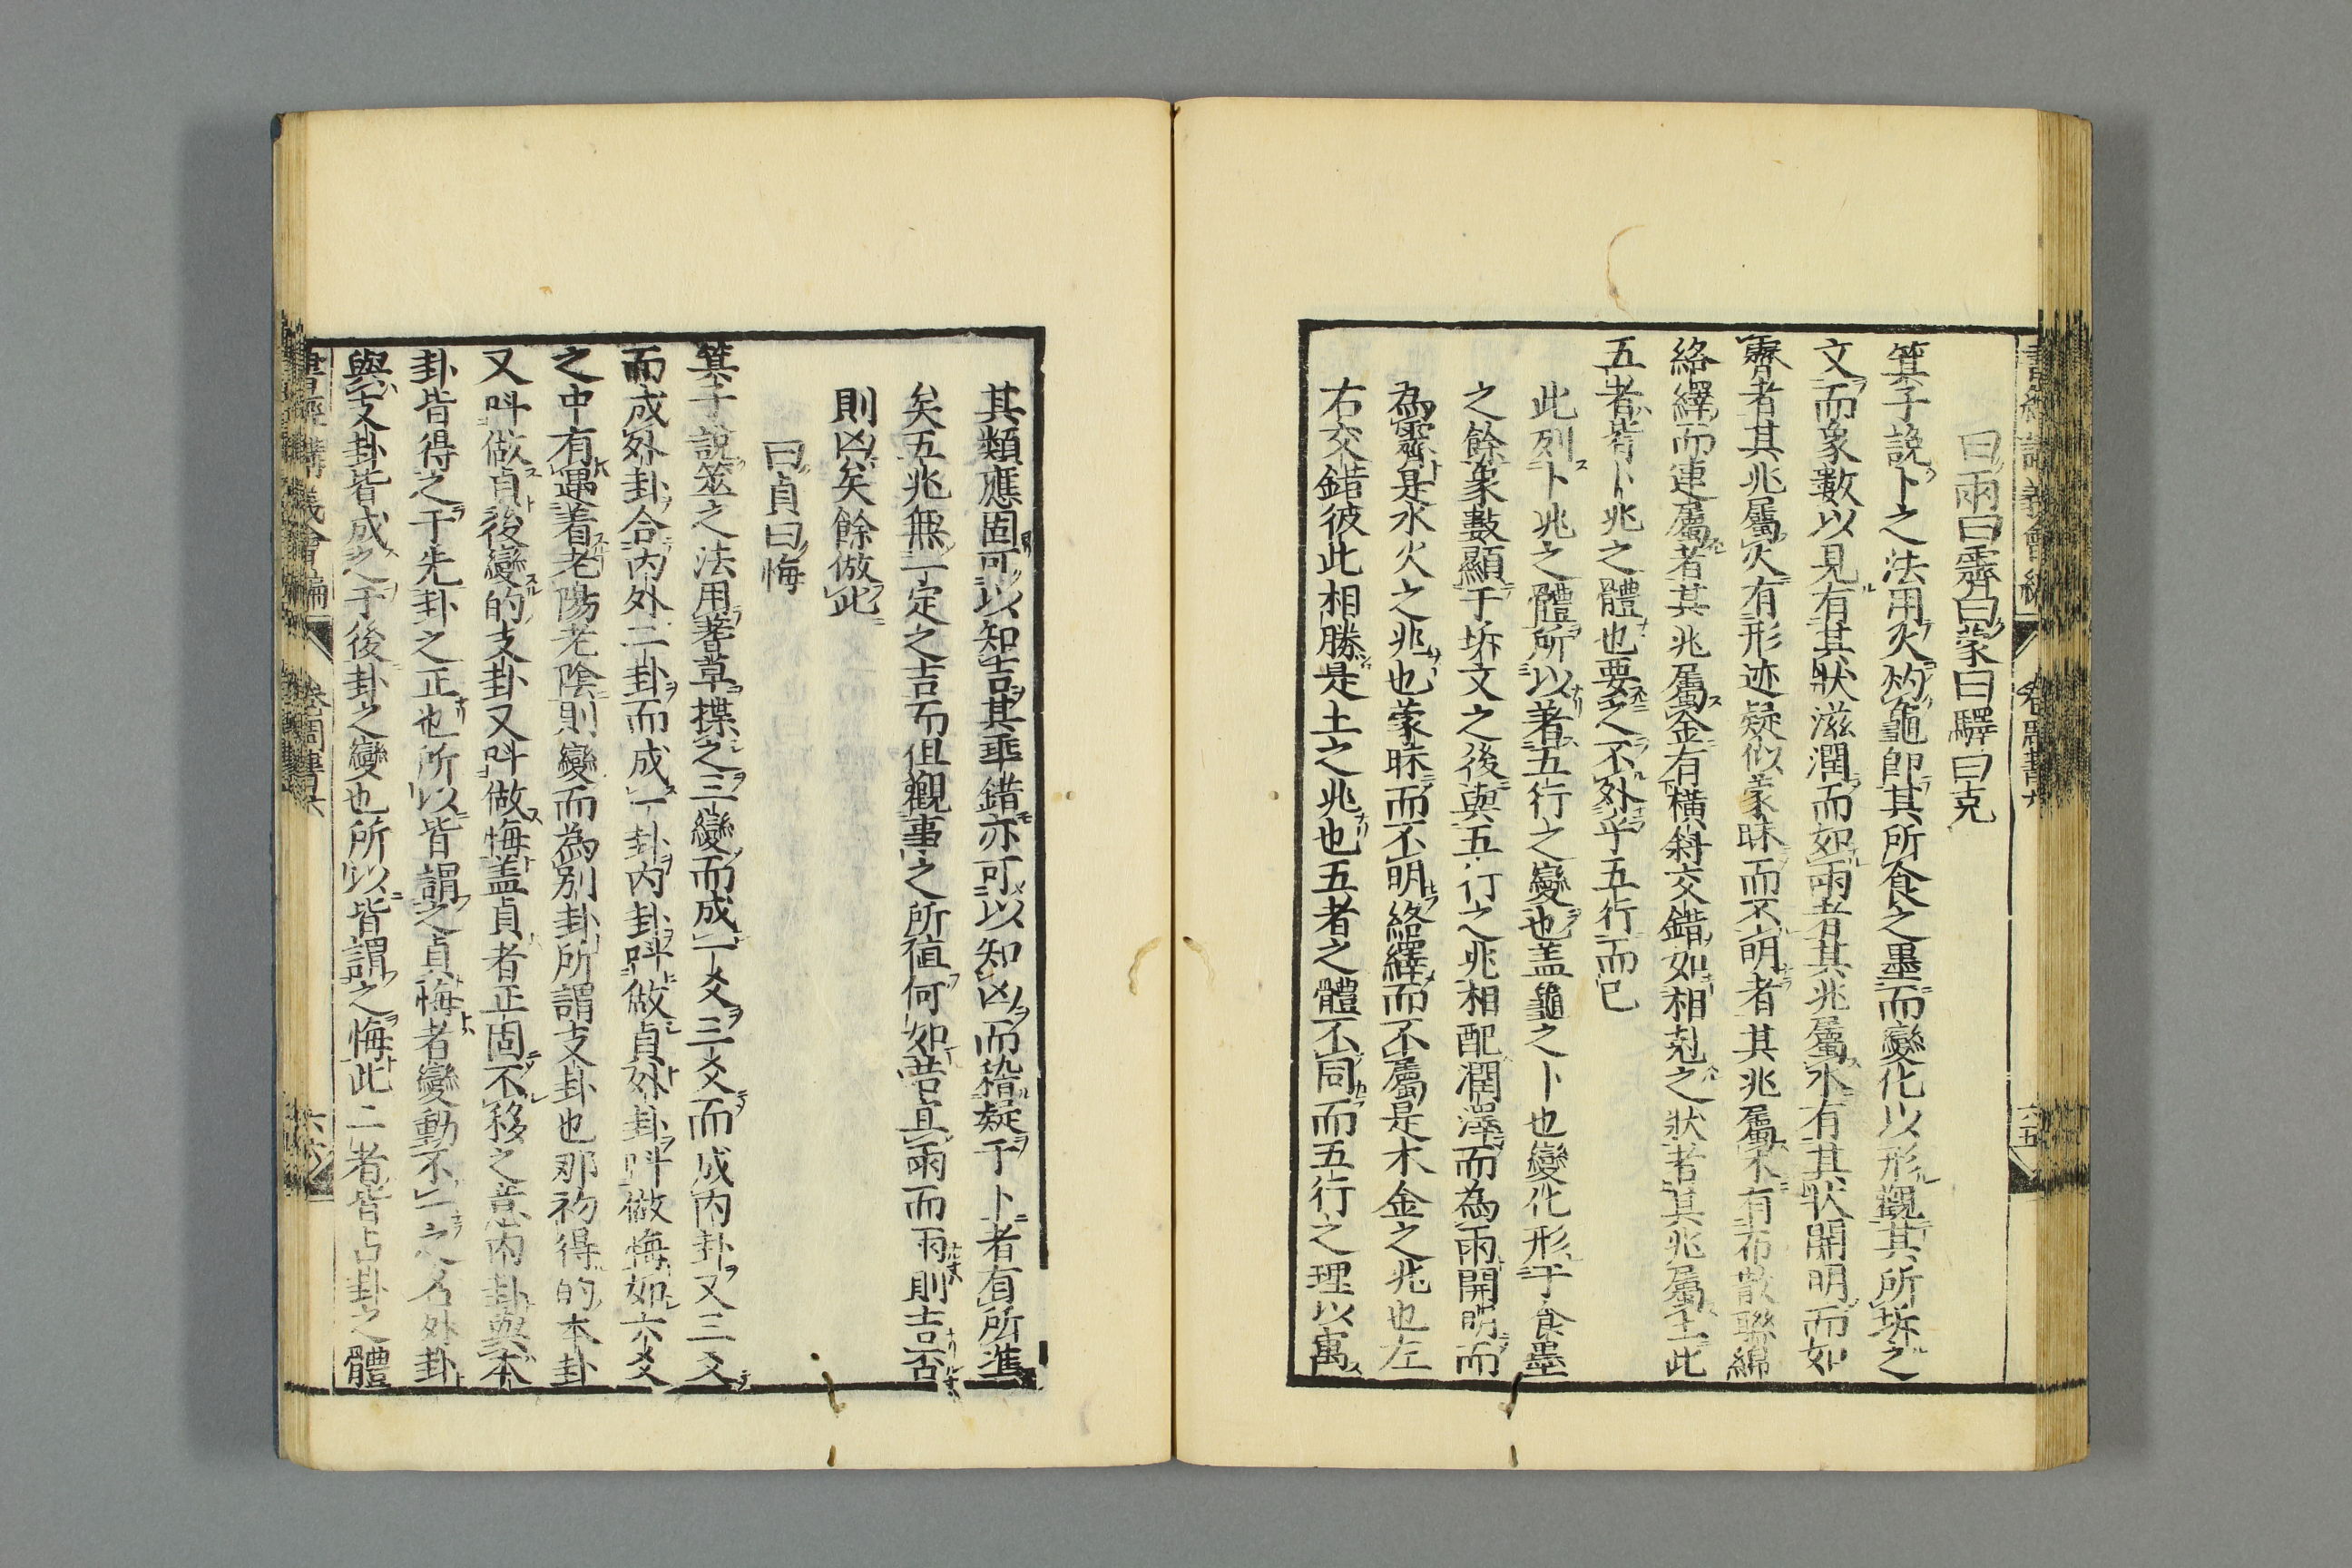 曰雨曰霽曰蒙曰驛曰克
箕子說卜之法用火灼龜即其所食之墨而變化以形觀其所坼之
文而象數以見有其狀滋潤而如雨者其兆屬水有其狀開明而如
霽者其兆屬火有形迹疑似蒙昧而不明者其兆屬木有布散聯綿
絡繹而連屬者其兆屬金有橫斜交錯如相剋之狀者其兆屬土此
五者皆卜兆之體也要之不外乎五行而已
此列卜兆之體所以著五行之變也盖龜之卜也變化形于食墨
之餘象數顯于坼文之後與五行之兆相配潤澤而為雨開明而
為霽是水火之兆也蒙昧而不明絡繹而不屬是木金之兆也左
右交錯彼此相勝是土之兆也五者之體不同而五行之理以寓
其類應固可以知吉其乖錯亦可以知凶而稽疑于卜者有所準
矣五兆無一定之吉而但觀事之所值何如昔且雨而雨則吉否
則凶矣餘倣此
曰貞曰悔
箕子說筮之法用蓍草揲之三變而成一爻三爻而成内卦又三爻
而成外卦合内外二卦而成一卦内卦呌做貞外卦呌做悔如六爻
之中有遇着老陽老陰則變而為别卦所謂支卦也那初得的本卦
又呌做貞後變的支卦又呌做悔盖貞者正固不移之意内卦與本
卦皆得之于先卦之正也所以皆謂之貞悔者變動不一之名外卦
與支卦皆成之于後卦之變也所以皆謂之悔此二者皆占卦之體
書經講義會編
卷四周書六